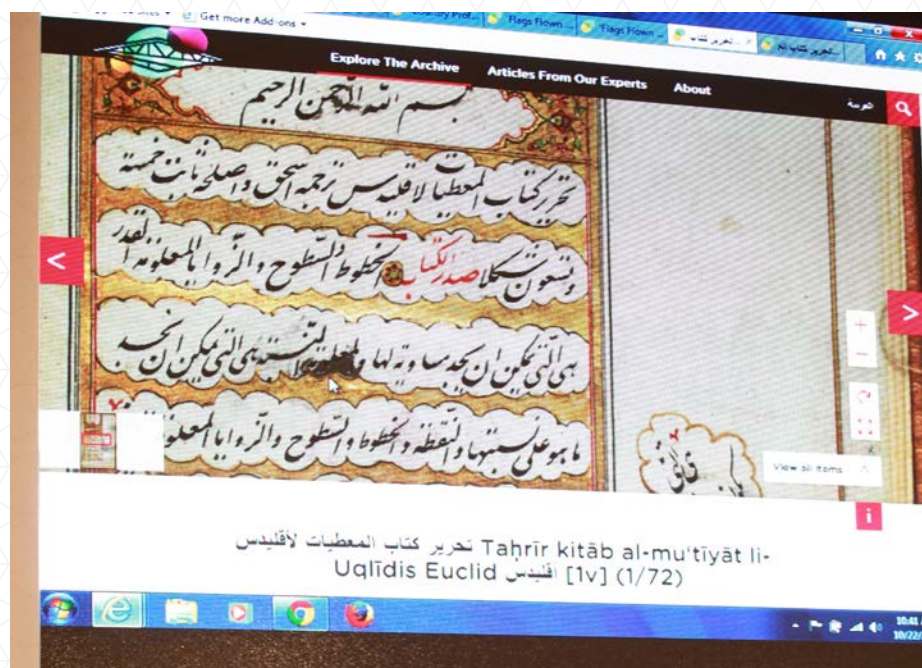 Sites Get more Add-ons Flags Flown ... Flags Flown ... تحرير كتاب...
Explore The Archive Articles From Our Experts About
بسم الله الرحمن الرحيم
تحرير كتاب المعطيات لاقليدس ترجمه اسحق واصلحه ثابت خمسة
وتسعون شكلا صدر الكتاب الخطوط والسطوح والزوايا المعلومة القدر
هى التى يمكن ان نجد مساوية لها والمعلومة النسبة هى التى يمكن ان نجد
ما هو على نسبتها والنقطة والخطوط والسطوح والزوايا
View all items
Taḥrīr kitāb al-mu‘tīyāt li- تحرير كتاب المعطيات لأقليدس
Uqlīdis Euclid أقليدس [1v] (1/72)
10:41
10/22/